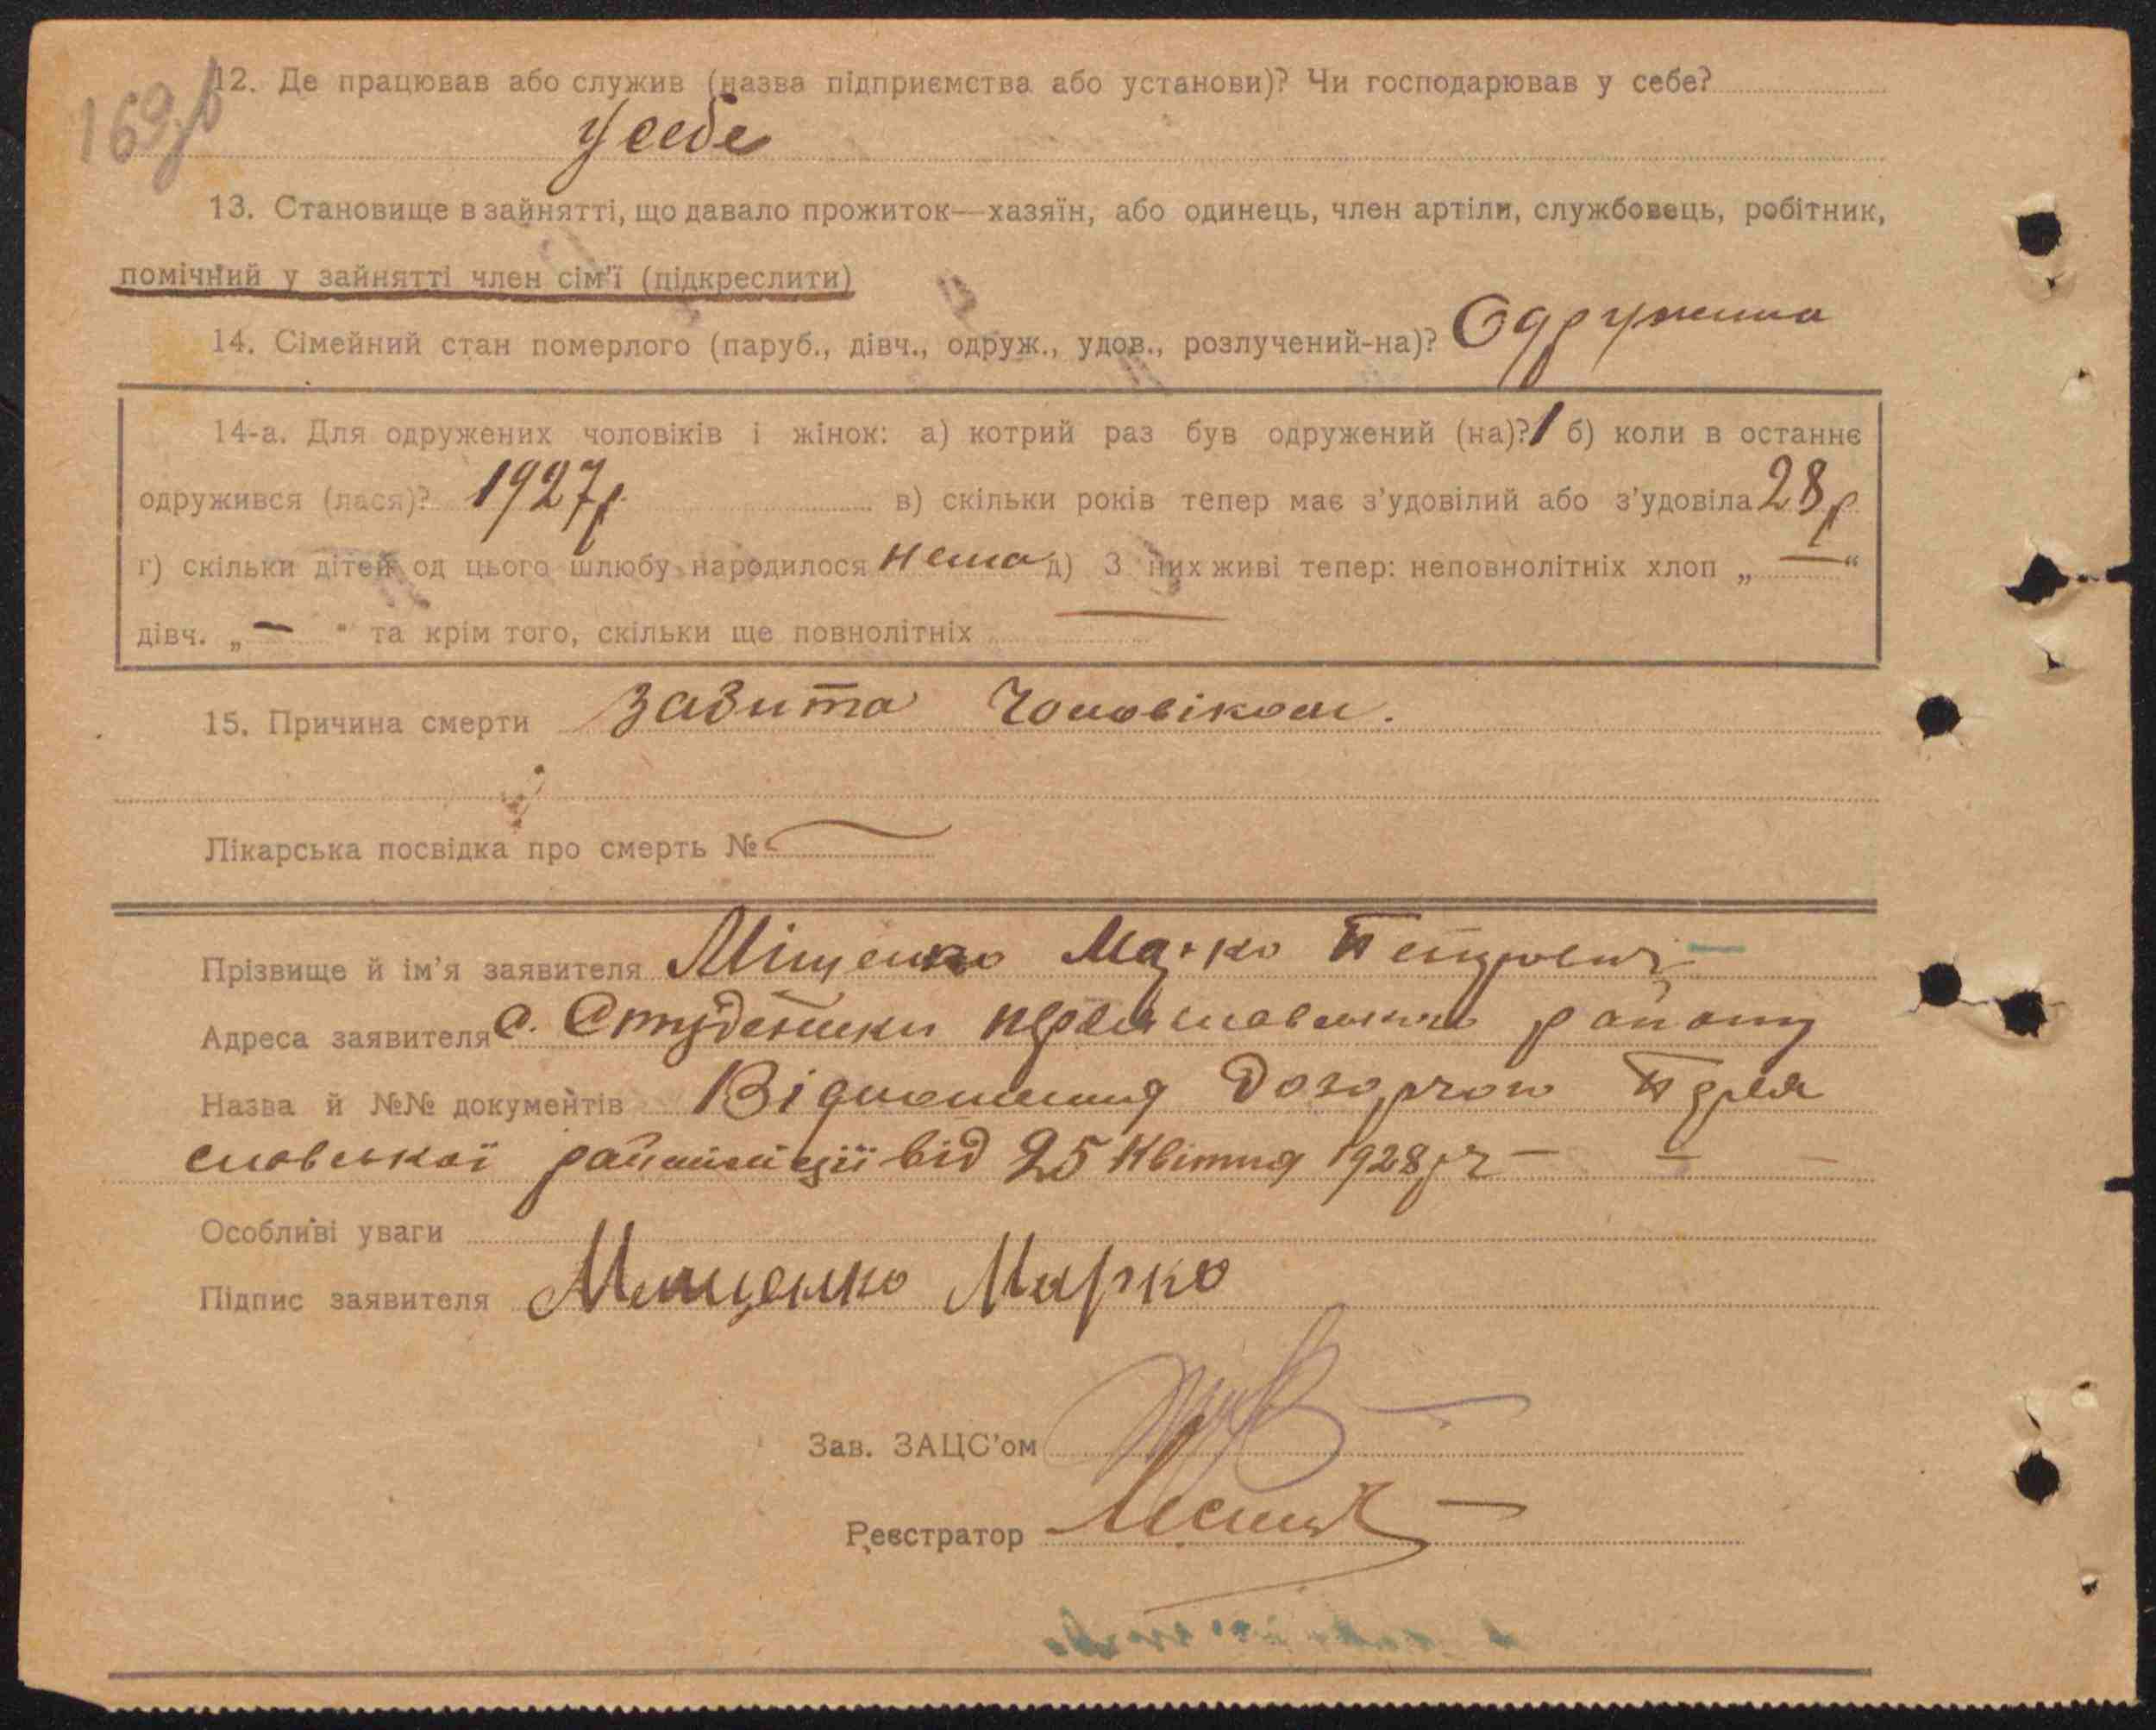 169зв
12. Де працював або служив (назва підприємства або установи)? Чи господарював у себе?
у себе
13. Становище в зайнятті, що давало прожиток—хазяїн, або одинець, член артіли, службовець, робітник,
помічний у зайнятті член сім'ї (підкреслити)
14. Сімейний стан померлого (паруб., дівч., одруж., удов., розлучений-на)? Одружена
14-а. Для одружених чоловіків і жінок: а) котрий раз був одружений (на)? 1 б) коли в останнє
одружився (лася)? 1927р в) скільки років тепер має з'удовілий або з'удовіла 28р
г) скільки дітей од цього шлюбу народилося нема д) З них живі тепер: неповнолітніх хлоп „ — “
дівч. „ — “ та крім того, скільки ще повнолітніх —
15. Причина смерти Забита Чоловіком.
Лікарська посвідка про смерть № —
Прізвище й ім'я заявителя Міщенко Марко Петрович
Адреса заявителя с. Студеники району
Назва й №№ документів Відношення
райміліції від 25 Квітня 1928р —
Особливі уваги
Підпис заявителя Мищенко Марко
Зав. ЗАЦС'ом
Реєстратор